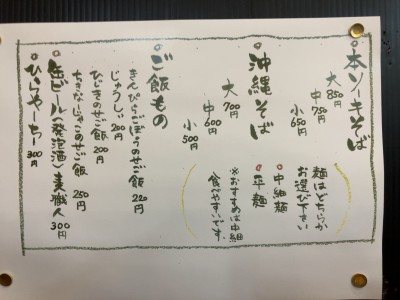 本ソーキそば
大850円
中750円
小650円
麺はどちらか
お選び下さい
中細麺
平麺
※おすすめは中細
食べやすいです。
沖縄そば
大700円
中600円
小500円
ご飯もの
きんぴらごぼうのせご飯 220円
じゅうしぃ 200円
ひじきのせご飯 200円
ちきなーじゃこのせご飯 250円
缶ビール(発泡酒)麦職人 300円
ひらやーちー 300円